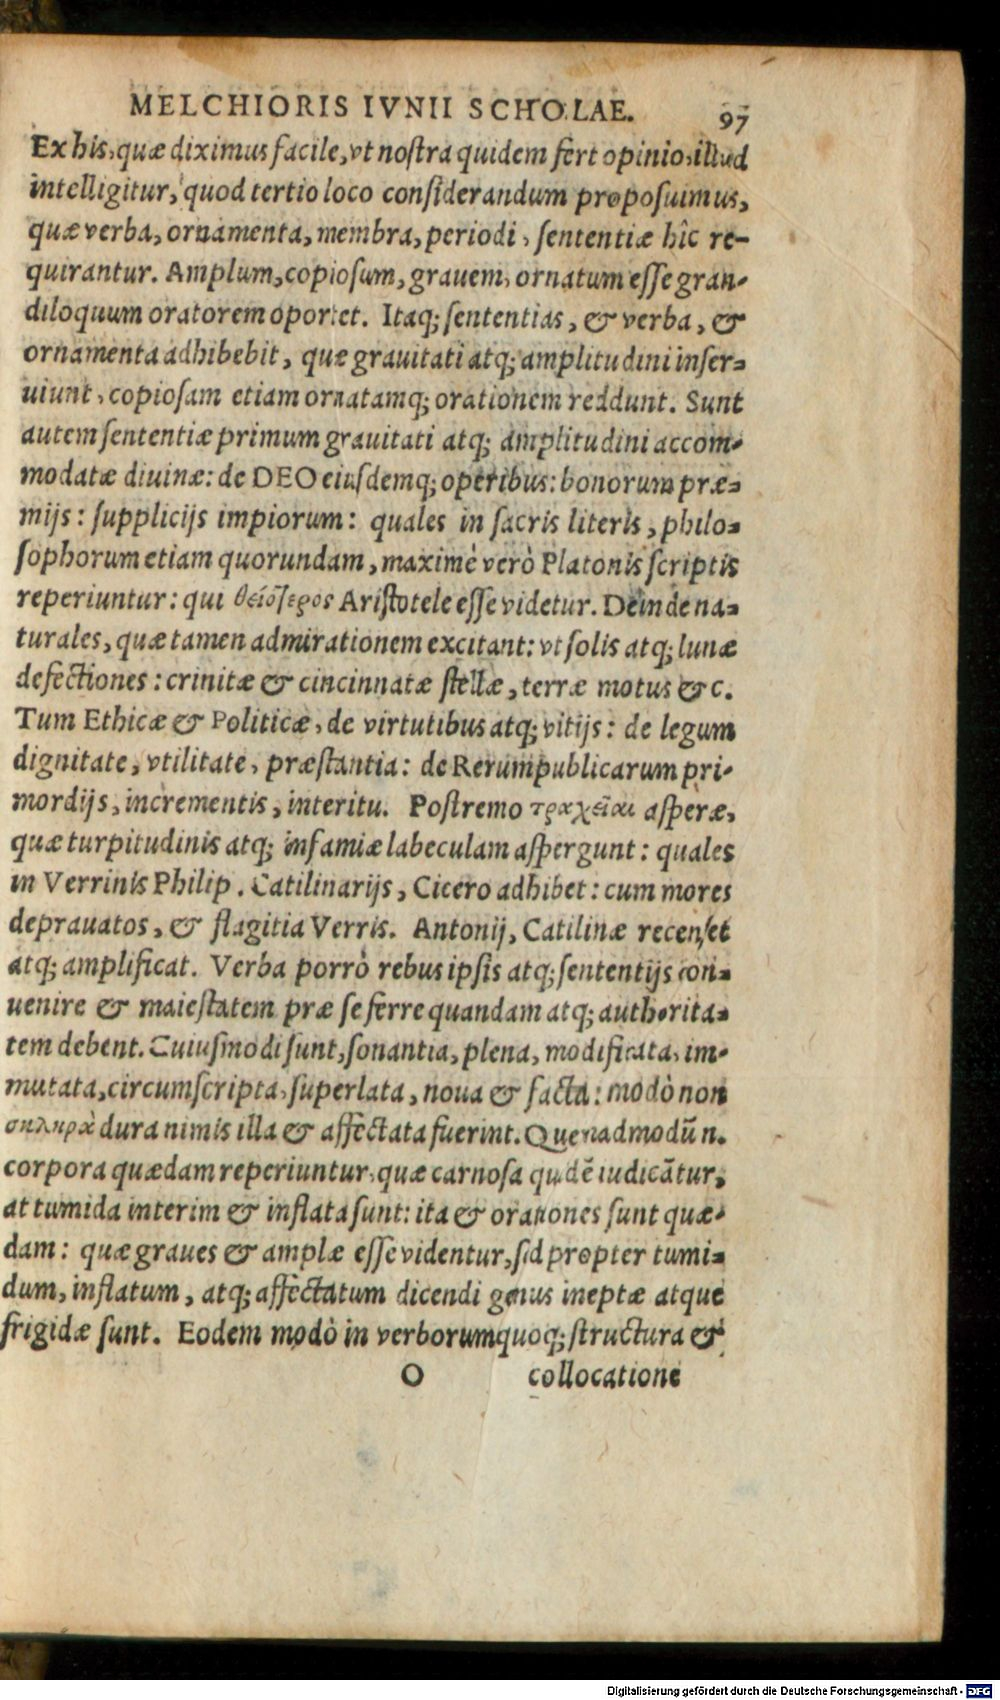 MELCHIORIS IVNII SCHOLAE. 97
Ex his, quæ diximus facile, vt nostra quidem fert opinio, illud
intelligitur, quod tertio loco considerandum proposuimus,
quæ verba, ornamenta, membra, periodi, sententiæ hîc re-
quirantur. Amplum, copiosum, grauem, ornatum esse gran-
diloquum oratorem oportet. Itaq; sententias, & verba, &
ornamenta adhibebit, quæ grauitati atq; amplitudini inser-
uiunt, copiosam etiam ornatamq; orationem reddunt. Sunt
autem sententiæ primum grauitati atq; amplitudini accom-
modatæ diuinæ: de DEO eiusdemq; operibus: bonorum præ-
mijs: supplicijs impiorum: quales in sacris literis, philo-
sophorum etiam quorundam, maximè verò Platonis scriptis
reperiuntur: qui θειότερος Aristotele esse videtur. Deinde na-
turales, quæ tamen admirationem excitant: vt solis atq; lunæ
defectiones: crinitæ & cincinnatæ stellæ, terræ motus &c.
Tum Ethicæ & Politicæ, de virtutibus atq; vitijs: de legum
dignitate, vtilitate, præstantia: de Rerumpublicarum pri-
mordijs, incrementis, interitu. Postremo τραχεῖαι asperæ,
quæ turpitudinis atq; infamiæ labeculam aspergunt: quales
in Verrinis Philip. Catilinarijs, Cicero adhibet: cum mores
deprauatos, & flagitia Verris. Antonij, Catilinæ recenset
atq; amplificat. Verba porrò rebus ipsis atq; sententijs con-
uenire & maiestatem præ se ferre quandam atq; authorita-
tem debent. Cuiusmodi sunt, sonantia, plena, modificata, im-
mutata, circumscripta, superlata, noua & facta: modò non
σκληρὰ dura nimis illa & affectata fuerint. Quenadmodū n.
corpora quædam reperiuntur, quæ carnosa quidē iudicātur,
at tumida interim & inflata sunt: ita & orationes sunt quæ-
dam: quæ graues & amplæ esse videntur, sed propter tumi-
dum, inflatum, atq; affectatum dicendi genus ineptæ atque
frigidæ sunt. Eodem modò in verborum quoq; structura &
O collocatione
Digitalisierung gefördert durch die Deutsche Forschungsgemeinschaft - DFG